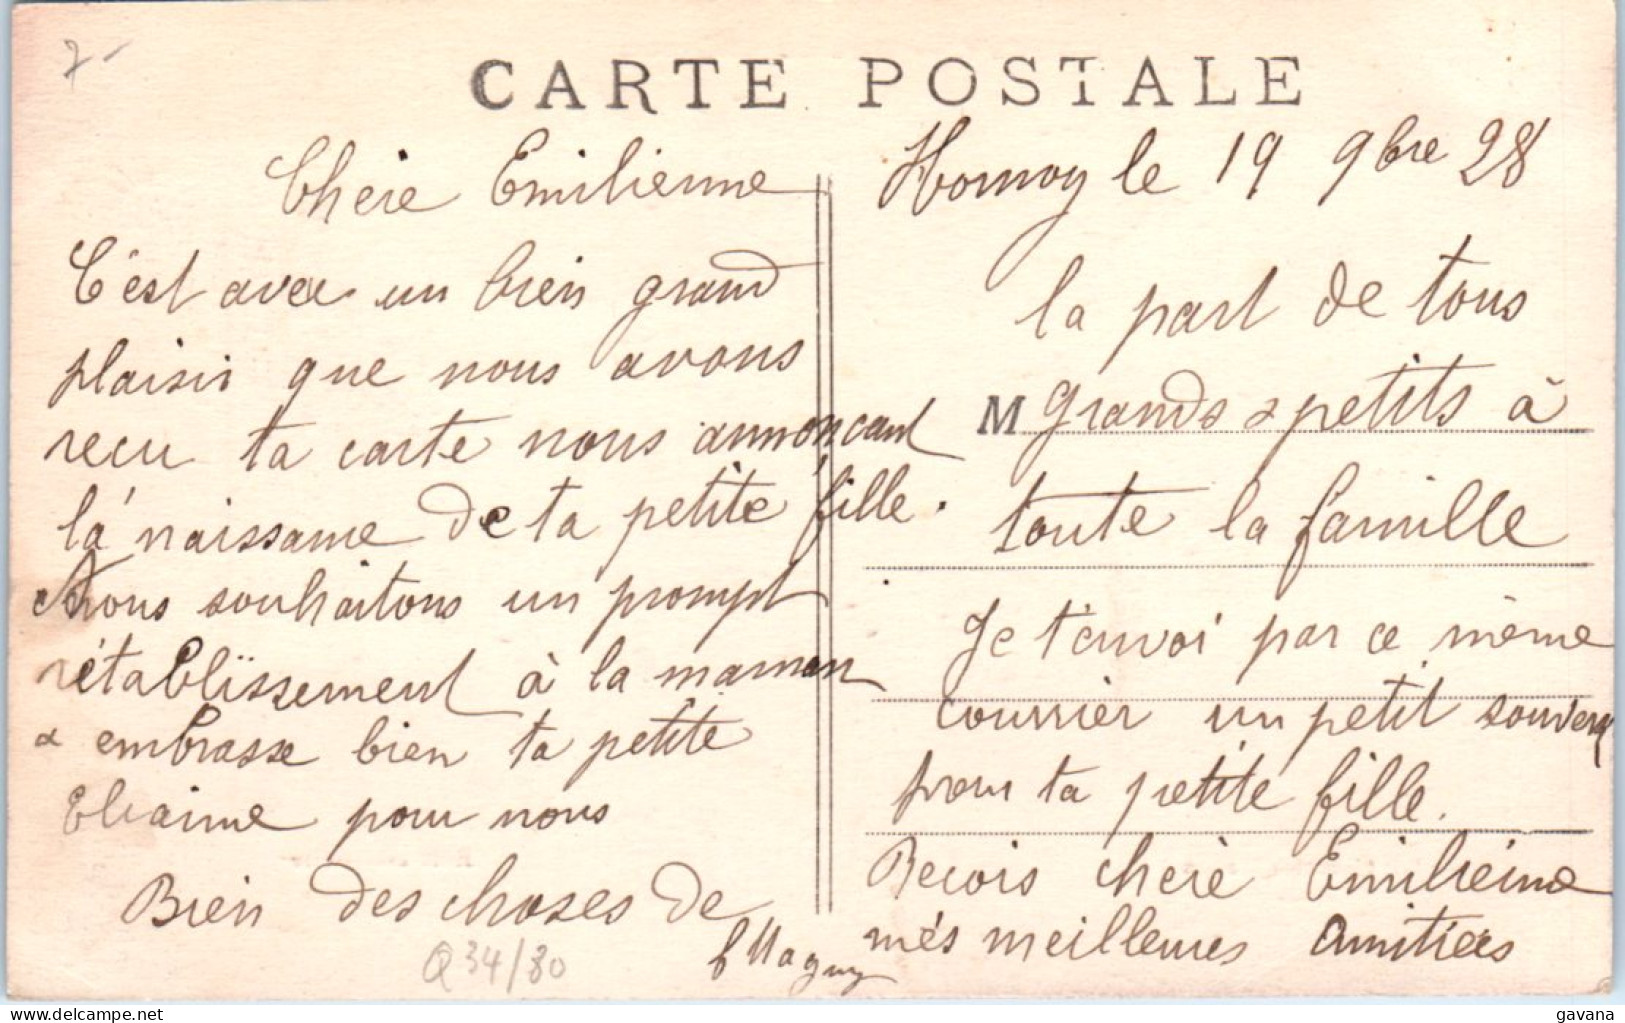 7-
CARTE POSTALE
Hornoy le 19 9bre 28
Chère Emilienne
C'est avec un bien grand
plaisir que nous avons
recu ta carte nous annoncant
la naissance de ta petite fille.
Nous souhaitons un prompt
rétablissement à la maman
& embrasse bien ta petite
Eliaine pour nous
Bien des choses de
la part de tous
M Grands & petits à
toute la famille
Je t'envoi par ce même
courrier un petit souvenir
pour ta petite fille.
Recois chère Emilienne
més meilleures Amitiées
Maguy
Q34/80
www.delcampe.net
gavana